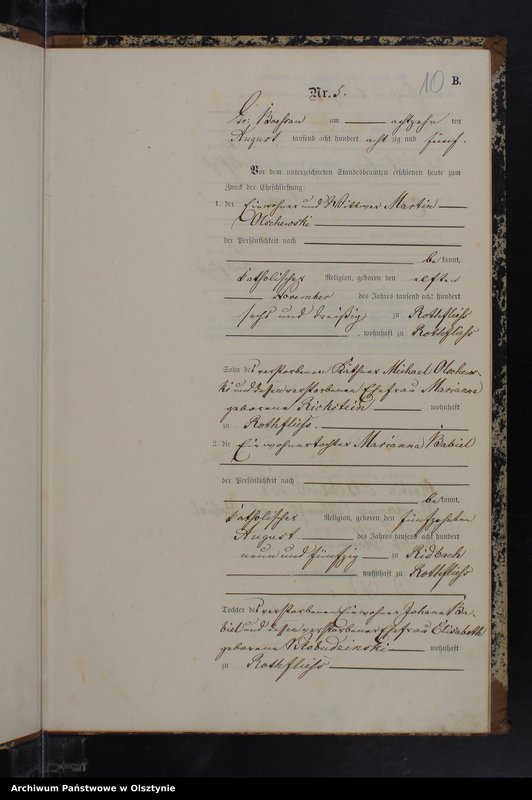 10 B.
Nr. 5.
Gr: Boessau am achtzehn ten
August tausend acht hundert acht zig und fünf.
Vor dem unterzeichneten Standesbeamten erschienen heute zum
Zweck der Eheschließung:
1. der Einwohner und Wittwer Martin
Olschewski
der Persönlichkeit nach
be kannt,
katholischer Religion, geboren den elften
November des Jahres tausend acht hundert
sechs und dreißig zu Rothfließ
, wohnhaft zu Rothfließ
Sohn des verstorbenen Käthner Michael Olschews-
ki und dessen verstorbenen Ehefrau Marianna
geborene Rickstein wohnhaft
zu Rothfließ.
2. die Einwohnertochter Marianna Babiel
der Persönlichkeit nach
be kannt,
katholischer Religion, geboren den fünfzehnten
August des Jahres tausend acht hundert
neun und fünfzig zu Ridbach
, wohnhaft zu Rothfließ
Tochter des verstorbenen Einwohner Johann Ba-
biel und dessen verstorbener Ehefrau Elisabeth
geborene Klobudzinski wohnhaft
zu Rothfließ
Archiwum Państwowe w Olsztynie